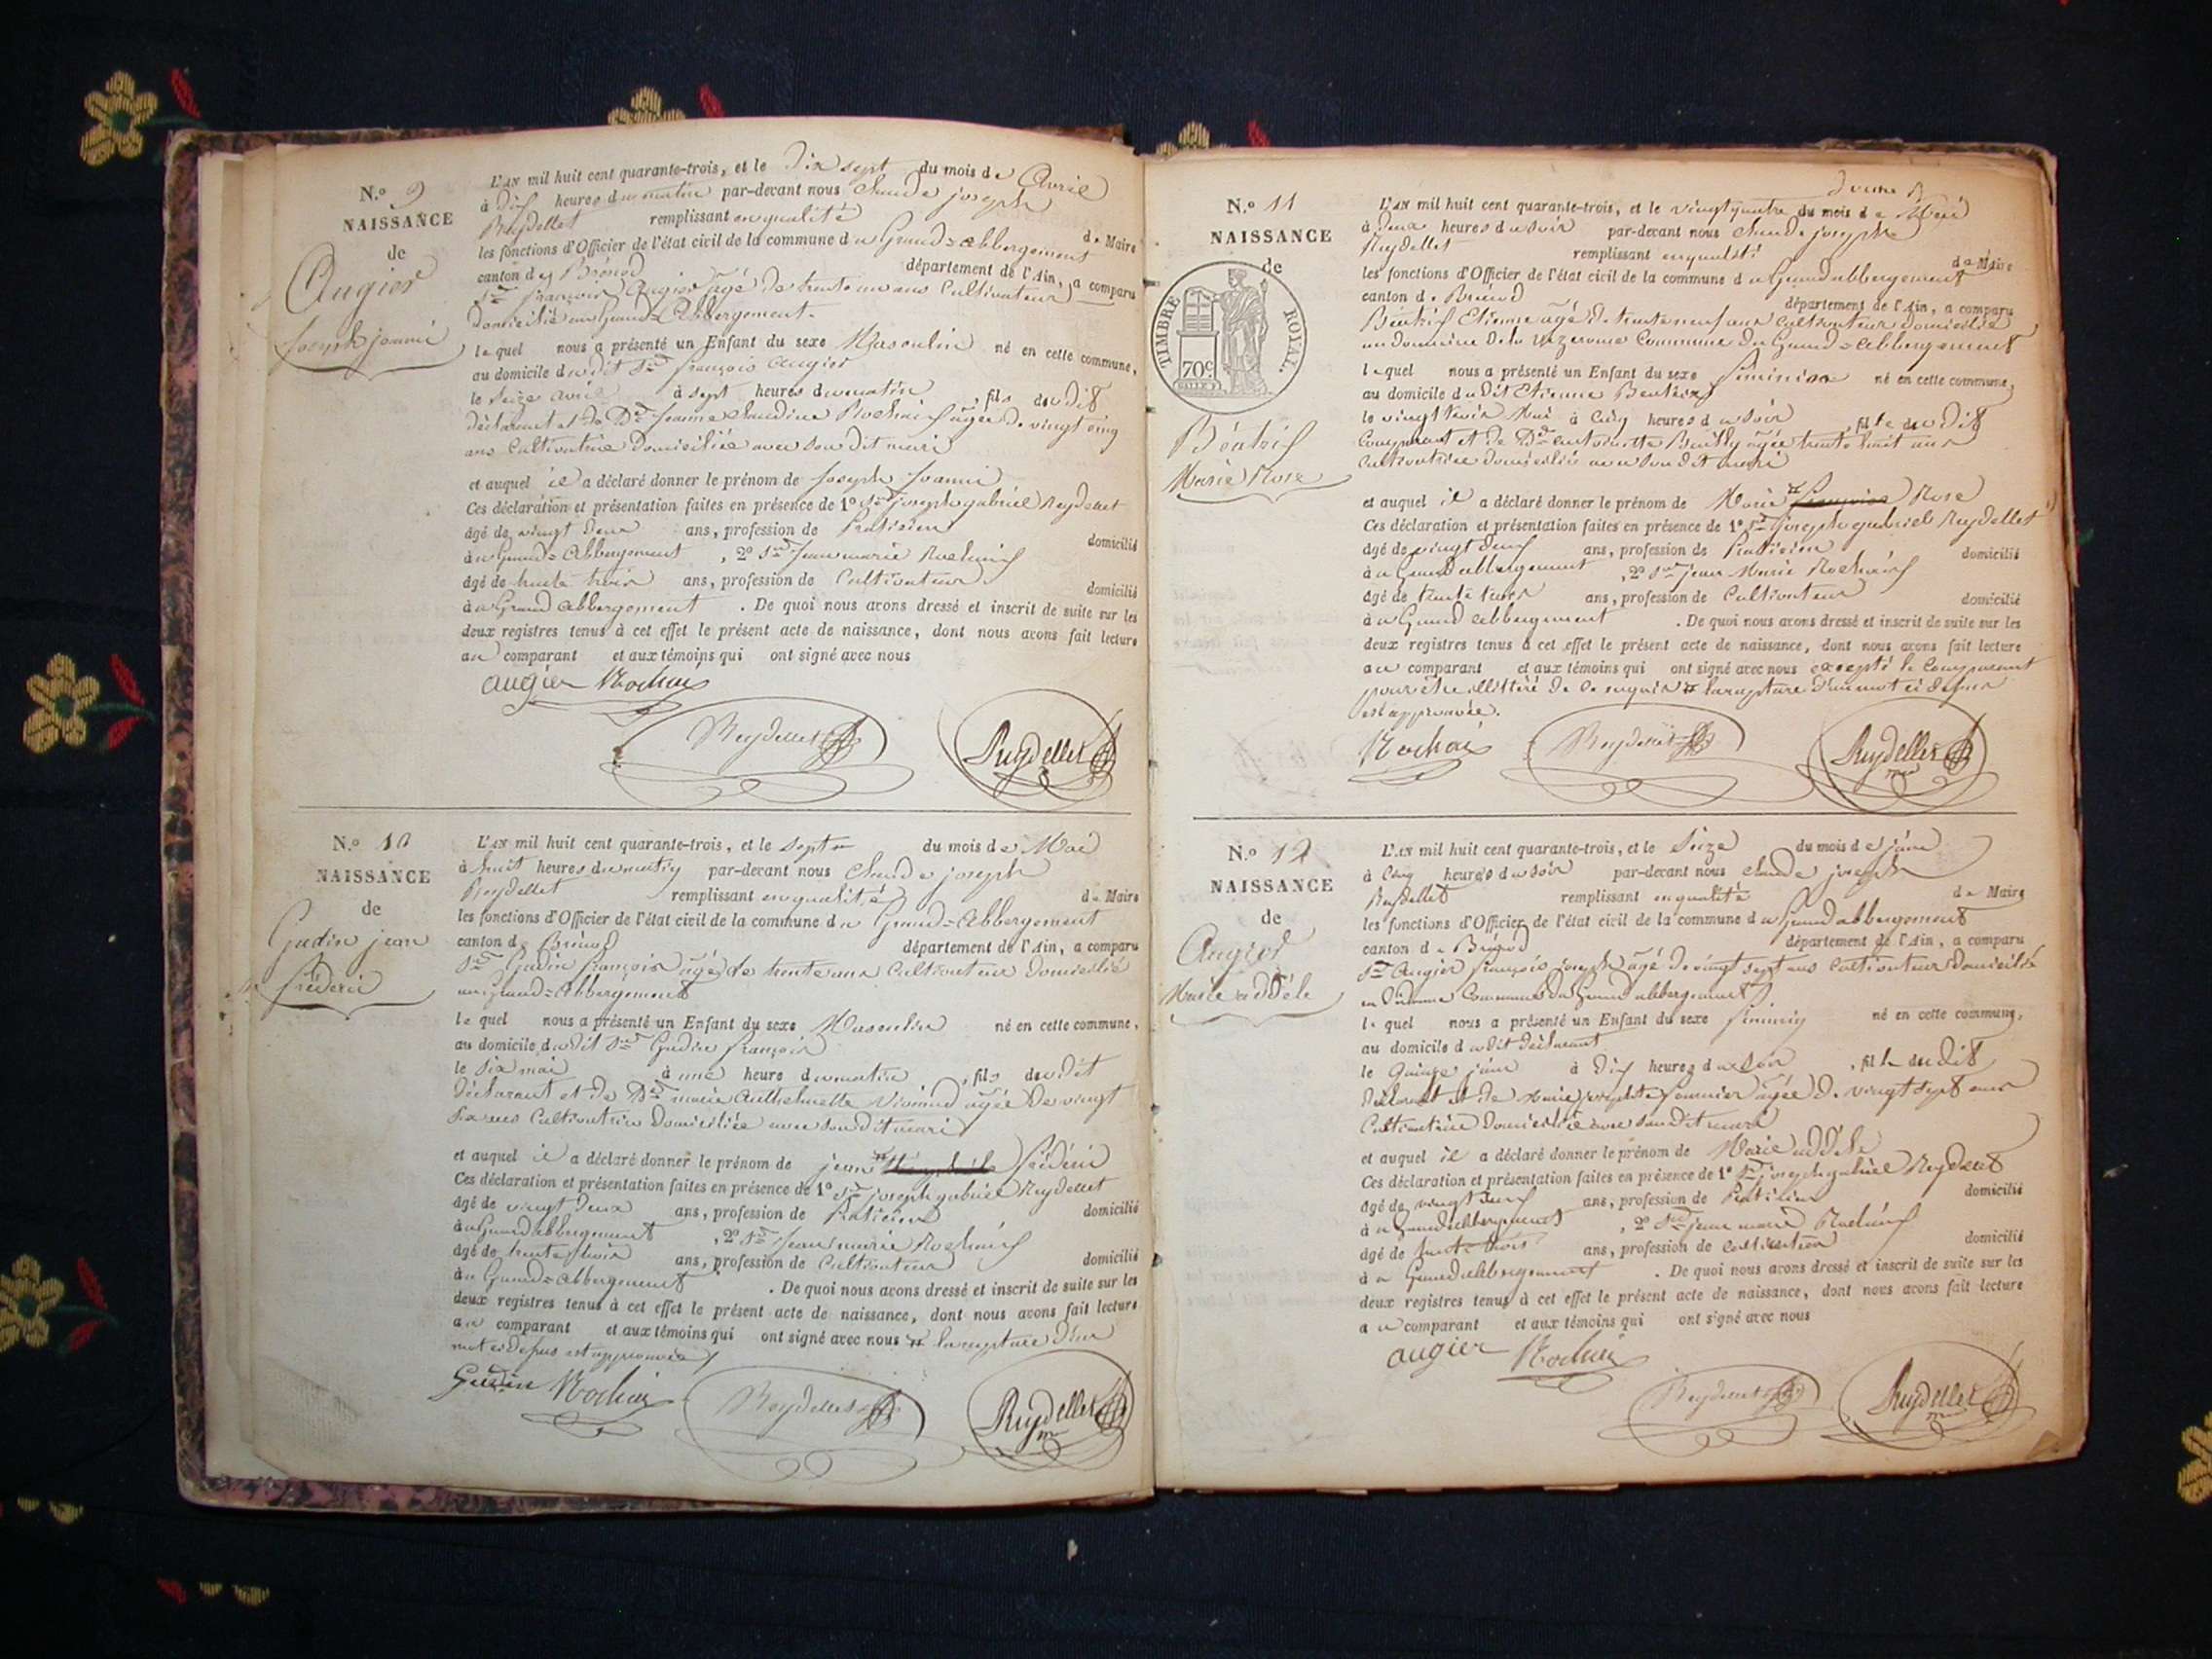 N.º 9
NAISSANCE
de
Augier
Joseph joanni
L'AN mil huit cent quarante-trois, et le Dix sept du mois de Avril
à Dix heures du matin par-devant nous Claude joseph
Reydellet remplissant en qualité de Maire
les fonctions d'Officier de l'état civil de la commune du Grand=Abbergement
canton de Brénod département de l'Ain, a comparu
Sr françois Augier âgé de trente ans Cultivateur
Domicilié au Grand=Abbergement.
lequel nous a présenté un Enfant du sexe Masculin né en cette commune,
au domicile dudit Sr françois Augier
le Seize avril à sept heures du matin, fils dudit
déclarant et de De Jeanne Claudine Rochaix âgée de vingt cinq
ans Cultivatrice Domiciliée avec son dit mari
et auquel il a déclaré donner le prénom de Joseph Joanni
Ces déclaration et présentation faites en présence de 1º Sr joseph gabriel Reydellet
âgé de vingt Deux ans, profession de Praticien domicilié
à u Grand=Abbergement, 2º Sr Jean marie Rochaix
âgé de trente trois ans, profession de Cultivateur domicilié
à u Grand Abbergement. De quoi nous avons dressé et inscrit de suite sur les
deux registres tenus à cet effet le présent acte de naissance, dont nous avons fait lecture
au comparant et aux témoins qui ont signé avec nous
augier Rochaix
Reydellet Reydellet
N.º 10
NAISSANCE
de
Gudin jean
fréderic
L'AN mil huit cent quarante-trois, et le sept du mois de Mai
à huit heures du matin par-devant nous Claude joseph
Reydellet remplissant en qualité de Maire
les fonctions d'Officier de l'état civil de la commune du Grand=Abbergement
canton de Brénod département de l'Ain, a comparu
Sr Gudin françois âgé de trente ans Cultivateur domicilié
au Grand=Abbergement
lequel nous a présenté un Enfant du sexe Masculin né en cette commune,
au domicile dudit Sr Gudin françois
le six mai à une heure du matin, fils dudit
déclarant et de De marie Anthelmette âgée De vingt
six ans Cultivatrice Domiciliée avec son dit mari
et auquel il a déclaré donner le prénom de jean fréderic
Ces déclaration et présentation faites en présence de 1º Sr joseph gabriel Reydellet
âgé de vingt Deux ans, profession de Praticien domicilié
à u Grand abbergement, 2º Sr Jean marie Rochaix
âgé de trente trois ans, profession de Cultivateur domicilié
à u Grand=Abbergement. De quoi nous avons dressé et inscrit de suite sur les
deux registres tenus à cet effet le présent acte de naissance, dont nous avons fait lecture
au comparant et aux témoins qui ont signé avec nous la rupture d'un
mot ci dessus est approuvée
Gudin Rochaix
Reydellet Reydellet
N.º 11
NAISSANCE
de
TIMBRE ROYAL.
70c
Béatrix
Marie Rose
L'AN mil huit cent quarante-trois, et le vingt quatre du mois de Mai
à Deux heures du soir par-devant nous Claude joseph
Reydellet remplissant en qualité de Maire
les fonctions d'Officier de l'état civil de la commune du Grand abbergement
canton de Brénod département de l'Ain, a comparu
Béatrix Etienne âgé de trente neuf ans Cultivateur domicilié
au domaine de la Commune du Grand=Abbergement
lequel nous a présenté un Enfant du sexe féminin né en cette commune,
au domicile dudit Etienne Béatrix
le vingt trois Mai à Cinq heures du soir, fille dudit
Comparant et de De antoinette Bailly âgée trente huit ans
Cultivatrice domiciliée avec son dit mari
et auquel il a déclaré donner le prénom de Marie Rose
Ces déclaration et présentation faites en présence de 1º Sr joseph gabriel Reydellet
âgé de vingt deux ans, profession de Praticien domicilié
à u Grand abbergement, 2º Sr jean Marie Rochaix
âgé de trente trois ans, profession de Cultivateur domicilié
à u Grand abbergement. De quoi nous avons dressé et inscrit de suite sur les
deux registres tenus à cet effet le présent acte de naissance, dont nous avons fait lecture
au comparant et aux témoins qui ont signé avec nous excepté le Comparant
pour être illitéré de ce enquis la rupture d'un mot ci dessus
est approuvée.
Rochaix Reydellet Reydellet
N.º 12
NAISSANCE
de
Augier
Marie addèle
L'AN mil huit cent quarante-trois, et le Seize du mois de juin
à Cinq heures du soir par-devant nous Claude joseph
Reydellet remplissant en qualité de Maire
les fonctions d'Officier de l'état civil de la commune du Grand abbergement
canton de Brénod département de l'Ain, a comparu
Sr Augier françois joseph âgé de vingt sept ans Cultivateur domicilié
Commune du Grand abbergement
lequel nous a présenté un Enfant du sexe féminin né en cette commune,
au domicile dudit déclarant
le quinze juin à Dix heures du soir, fille dudit
déclarant et de Marie josephte fournier âgée de vingt sept ans
Cultivatrice Domiciliée avec son dit mari
et auquel il a déclaré donner le prénom de Marie addèle
Ces déclaration et présentation faites en présence de 1º Sr joseph gabriel Reydellet
âgé de vingt deux ans, profession de Praticien domicilié
à u Grand abbergement, 2º Sr jean marie Rochaix
âgé de trente trois ans, profession de cultivateur domicilié
à u Grand abbergement. De quoi nous avons dressé et inscrit de suite sur les
deux registres tenus à cet effet le présent acte de naissance, dont nous avons fait lecture
au comparant et aux témoins qui ont signé avec nous
augier Rochaix
Reydellet Reydellet